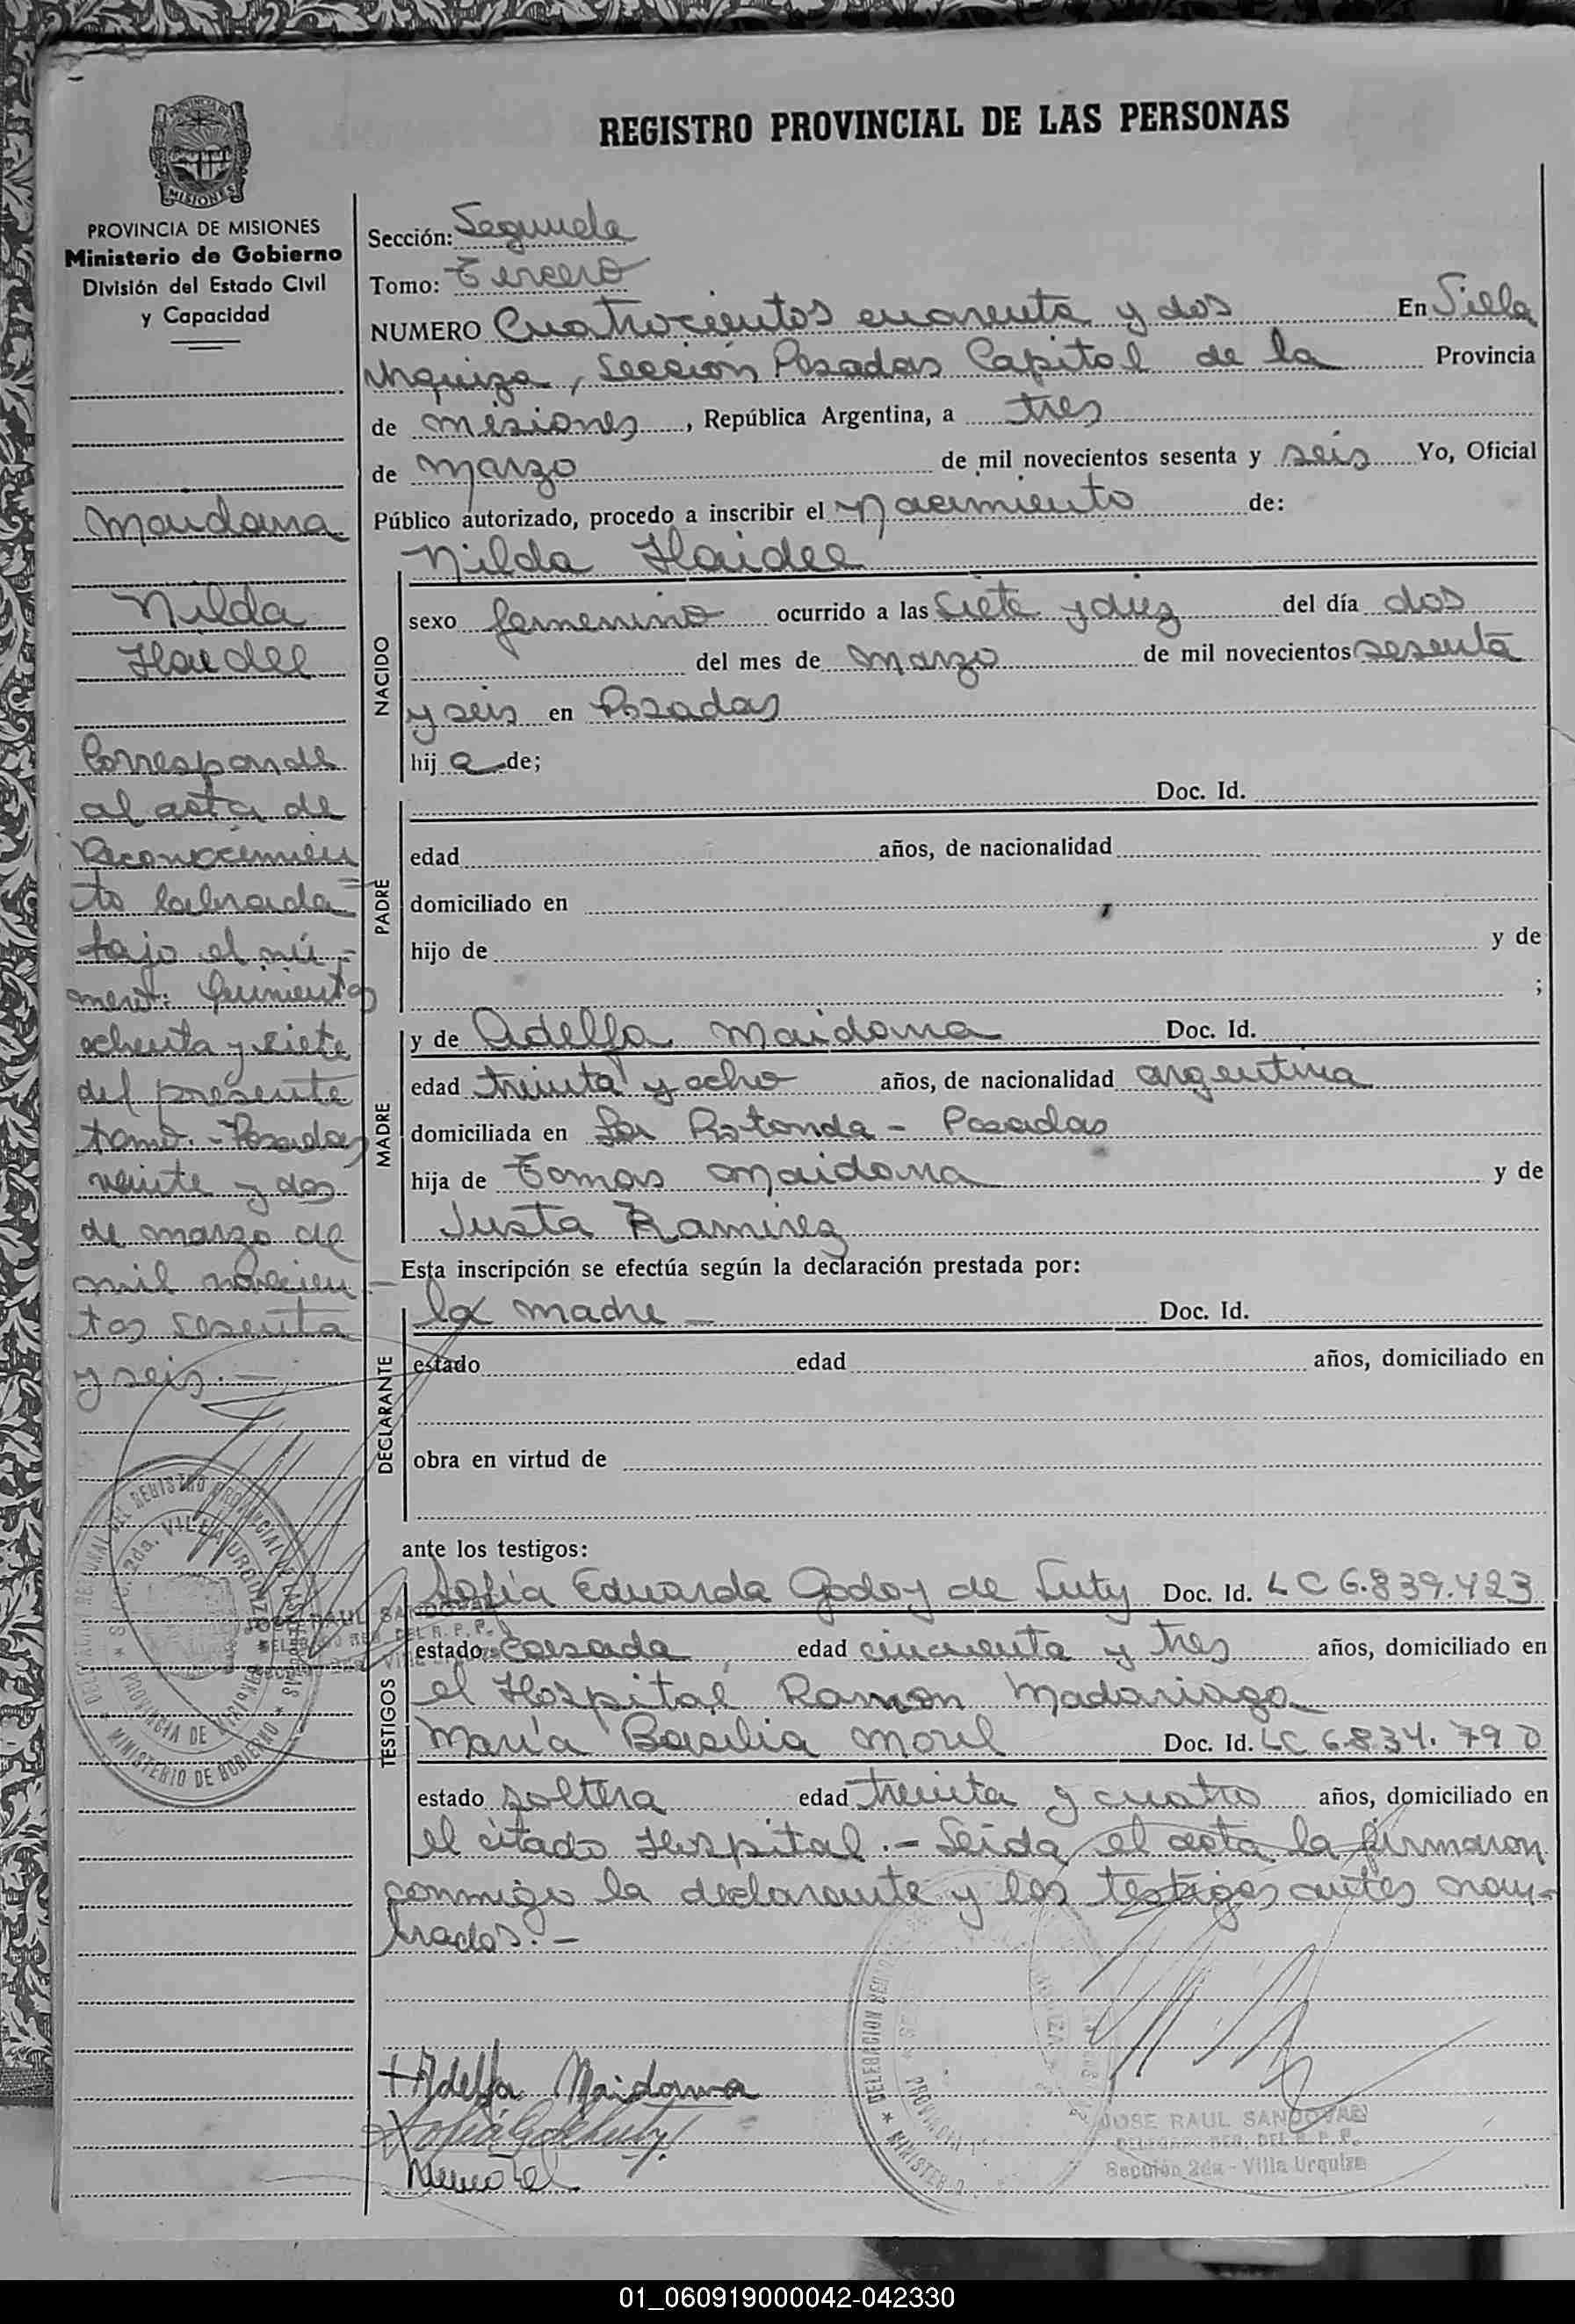 REGISTRO PROVINCIAL DE LAS PERSONAS
MISIONES
PROVINCIA DE MISIONES
Ministerio de Gobierno
División del Estado Civil
y Capacidad
Maidana
Nilda
Haidee
Corresponde
al acta de
Reconocimien
to labrada
bajo el nú-
mero: Quinientos
ochenta y siete
del presente
tomo.- Posadas
veinte y dos
de marzo de
mil novecien-
tos sesenta
y seis.-
Sección: Segunda
Tomo: Tercero
NUMERO Cuatrocientos cuarenta y dos En Villa
Urquiza, Sección Posadas Capital de la Provincia
de Misiones, República Argentina, a tres
de Marzo de mil novecientos sesenta y seis Yo, Oficial
Público autorizado, procedo a inscribir el Nacimiento de:
Nilda Haidee
NACIDO
sexo femenino ocurrido a las siete y diez del día dos
del mes de Marzo de mil novecientos sesenta
y seis en Posadas
hija de;
PADRE
Doc. Id.
edad años, de nacionalidad
domiciliado en
hijo de y de
;
MADRE
y de Adelfa Maidana Doc. Id.
edad treinta y ocho años, de nacionalidad argentina
domiciliada en La Rotonda - Posadas
hija de Tomas Maidana y de
Justa Ramirez
Esta inscripción se efectúa según la declaración prestada por:
DECLARANTE
la madre - Doc. Id.
estado edad años, domiciliado en
obra en virtud de
ante los testigos:
TESTIGOS
Sofía Eduarda Godoy de Luty Doc. Id. LC 6.839.423
estado casada edad cincuenta y tres años, domiciliado en
el Hospital Ramon Madariaga
María Basilia Morel Doc. Id. LC 6.834.790
estado soltera edad treinta y cuatro años, domiciliado en
el citado Hospital.- Leida el acta la firmaron
conmigo la declarante y los testigos antes nom-
brados.-
DELEGACION REGIONAL DEL REGISTRO PROVINCIAL DE LAS PERSONAS
SECC. 2da. VILLA URQUIZA
PROVINCIA DE MISIONES
MINISTERIO DE GOBIERNO
JOSE RAUL SANDOVAL
+ Adelfa Maidana
JOSE RAUL SANDOVAL
DELEGADO REG. DEL R. P. P.
Sección 2da - Villa Urquiza
01_060919000042-042330